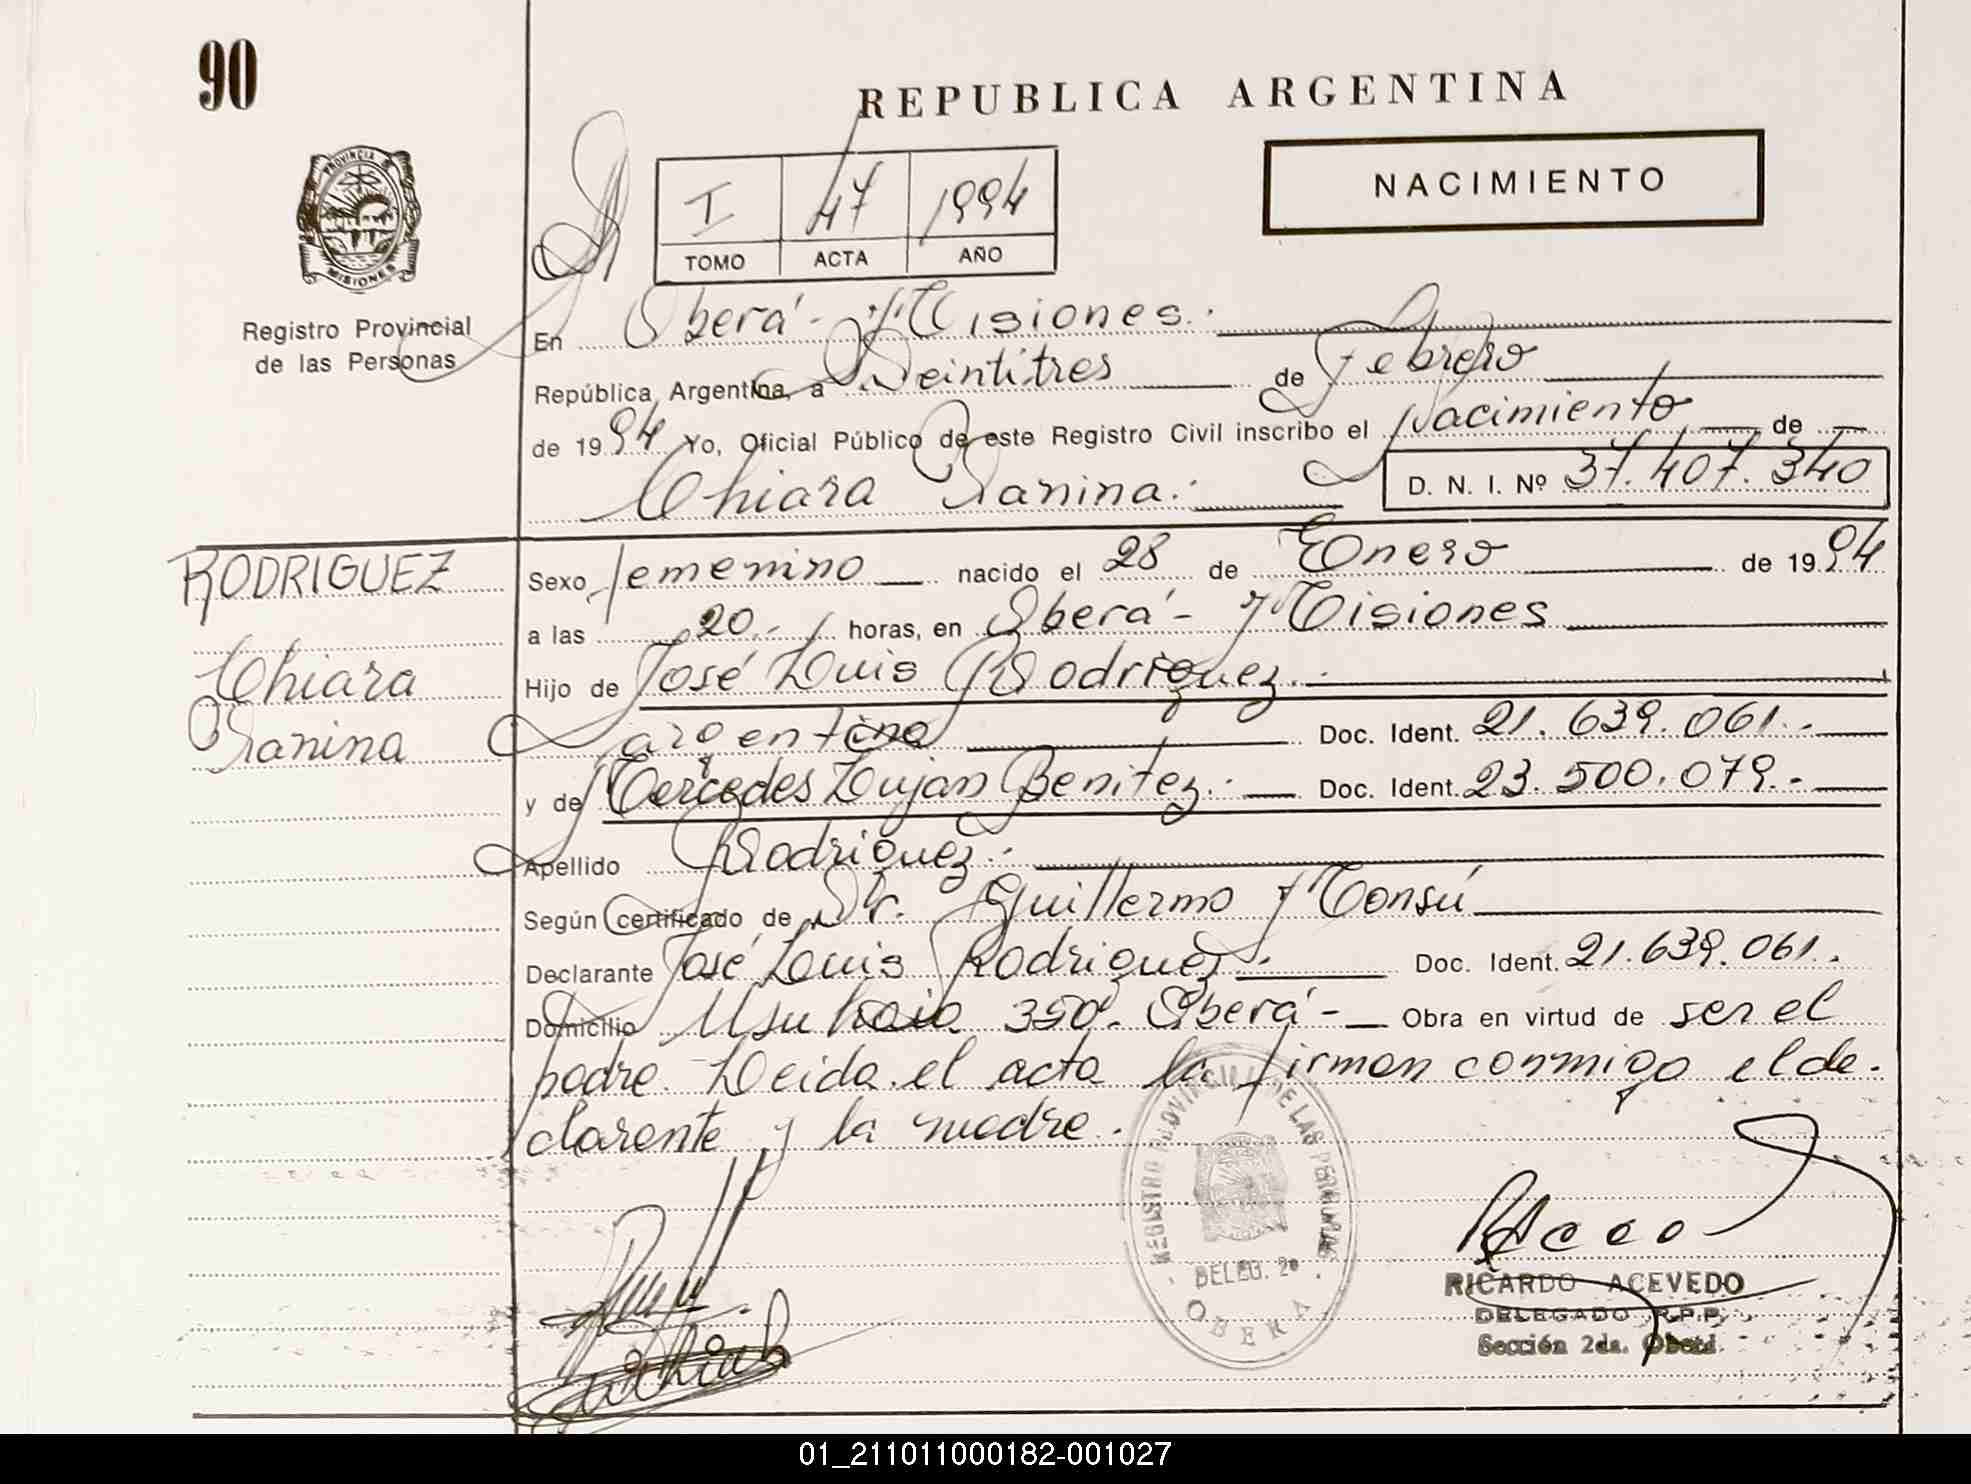 90
REPUBLICA ARGENTINA
PROVINCIA DE
MISIONES
Registro Provincial
de las Personas
I 47 1994
TOMO ACTA AÑO
NACIMIENTO
En Oberá - Misiones.
República Argentina, a Veintitres de Febrero
de 1994 Yo, Oficial Público de este Registro Civil inscribo el nacimiento de
Chiara Ianina.
D. N. I. Nº 37.407.340
RODRIGUEZ
Chiara
Ianina
Sexo femenino nacido el 28 de Enero de 1994
a las 20.- horas, en Oberá - Misiones
Hijo de José Luis Rodriguez.
argentino Doc. Ident. 21.639.061.-
y de Mercedes Lujan Benitez. Doc. Ident. 23.500.079.-
Apellido Rodriguez.
Según certificado de Dr. Guillermo Monsú
Declarante José Luis Rodriguez. Doc. Ident. 21.639.061.
Domicilio Usuhaia 350. Oberá - Obra en virtud de ser el
padre. Leida el acta la firman conmigo el de-
clarante y la madre.
REGISTRO PROVINCIAL DE LAS PERSONAS
DELEG. 2ª
OBERA
RICARDO ACEVEDO
DELEGADO R.P.P.
Sección 2da. Oberá
01_211011000182-001027